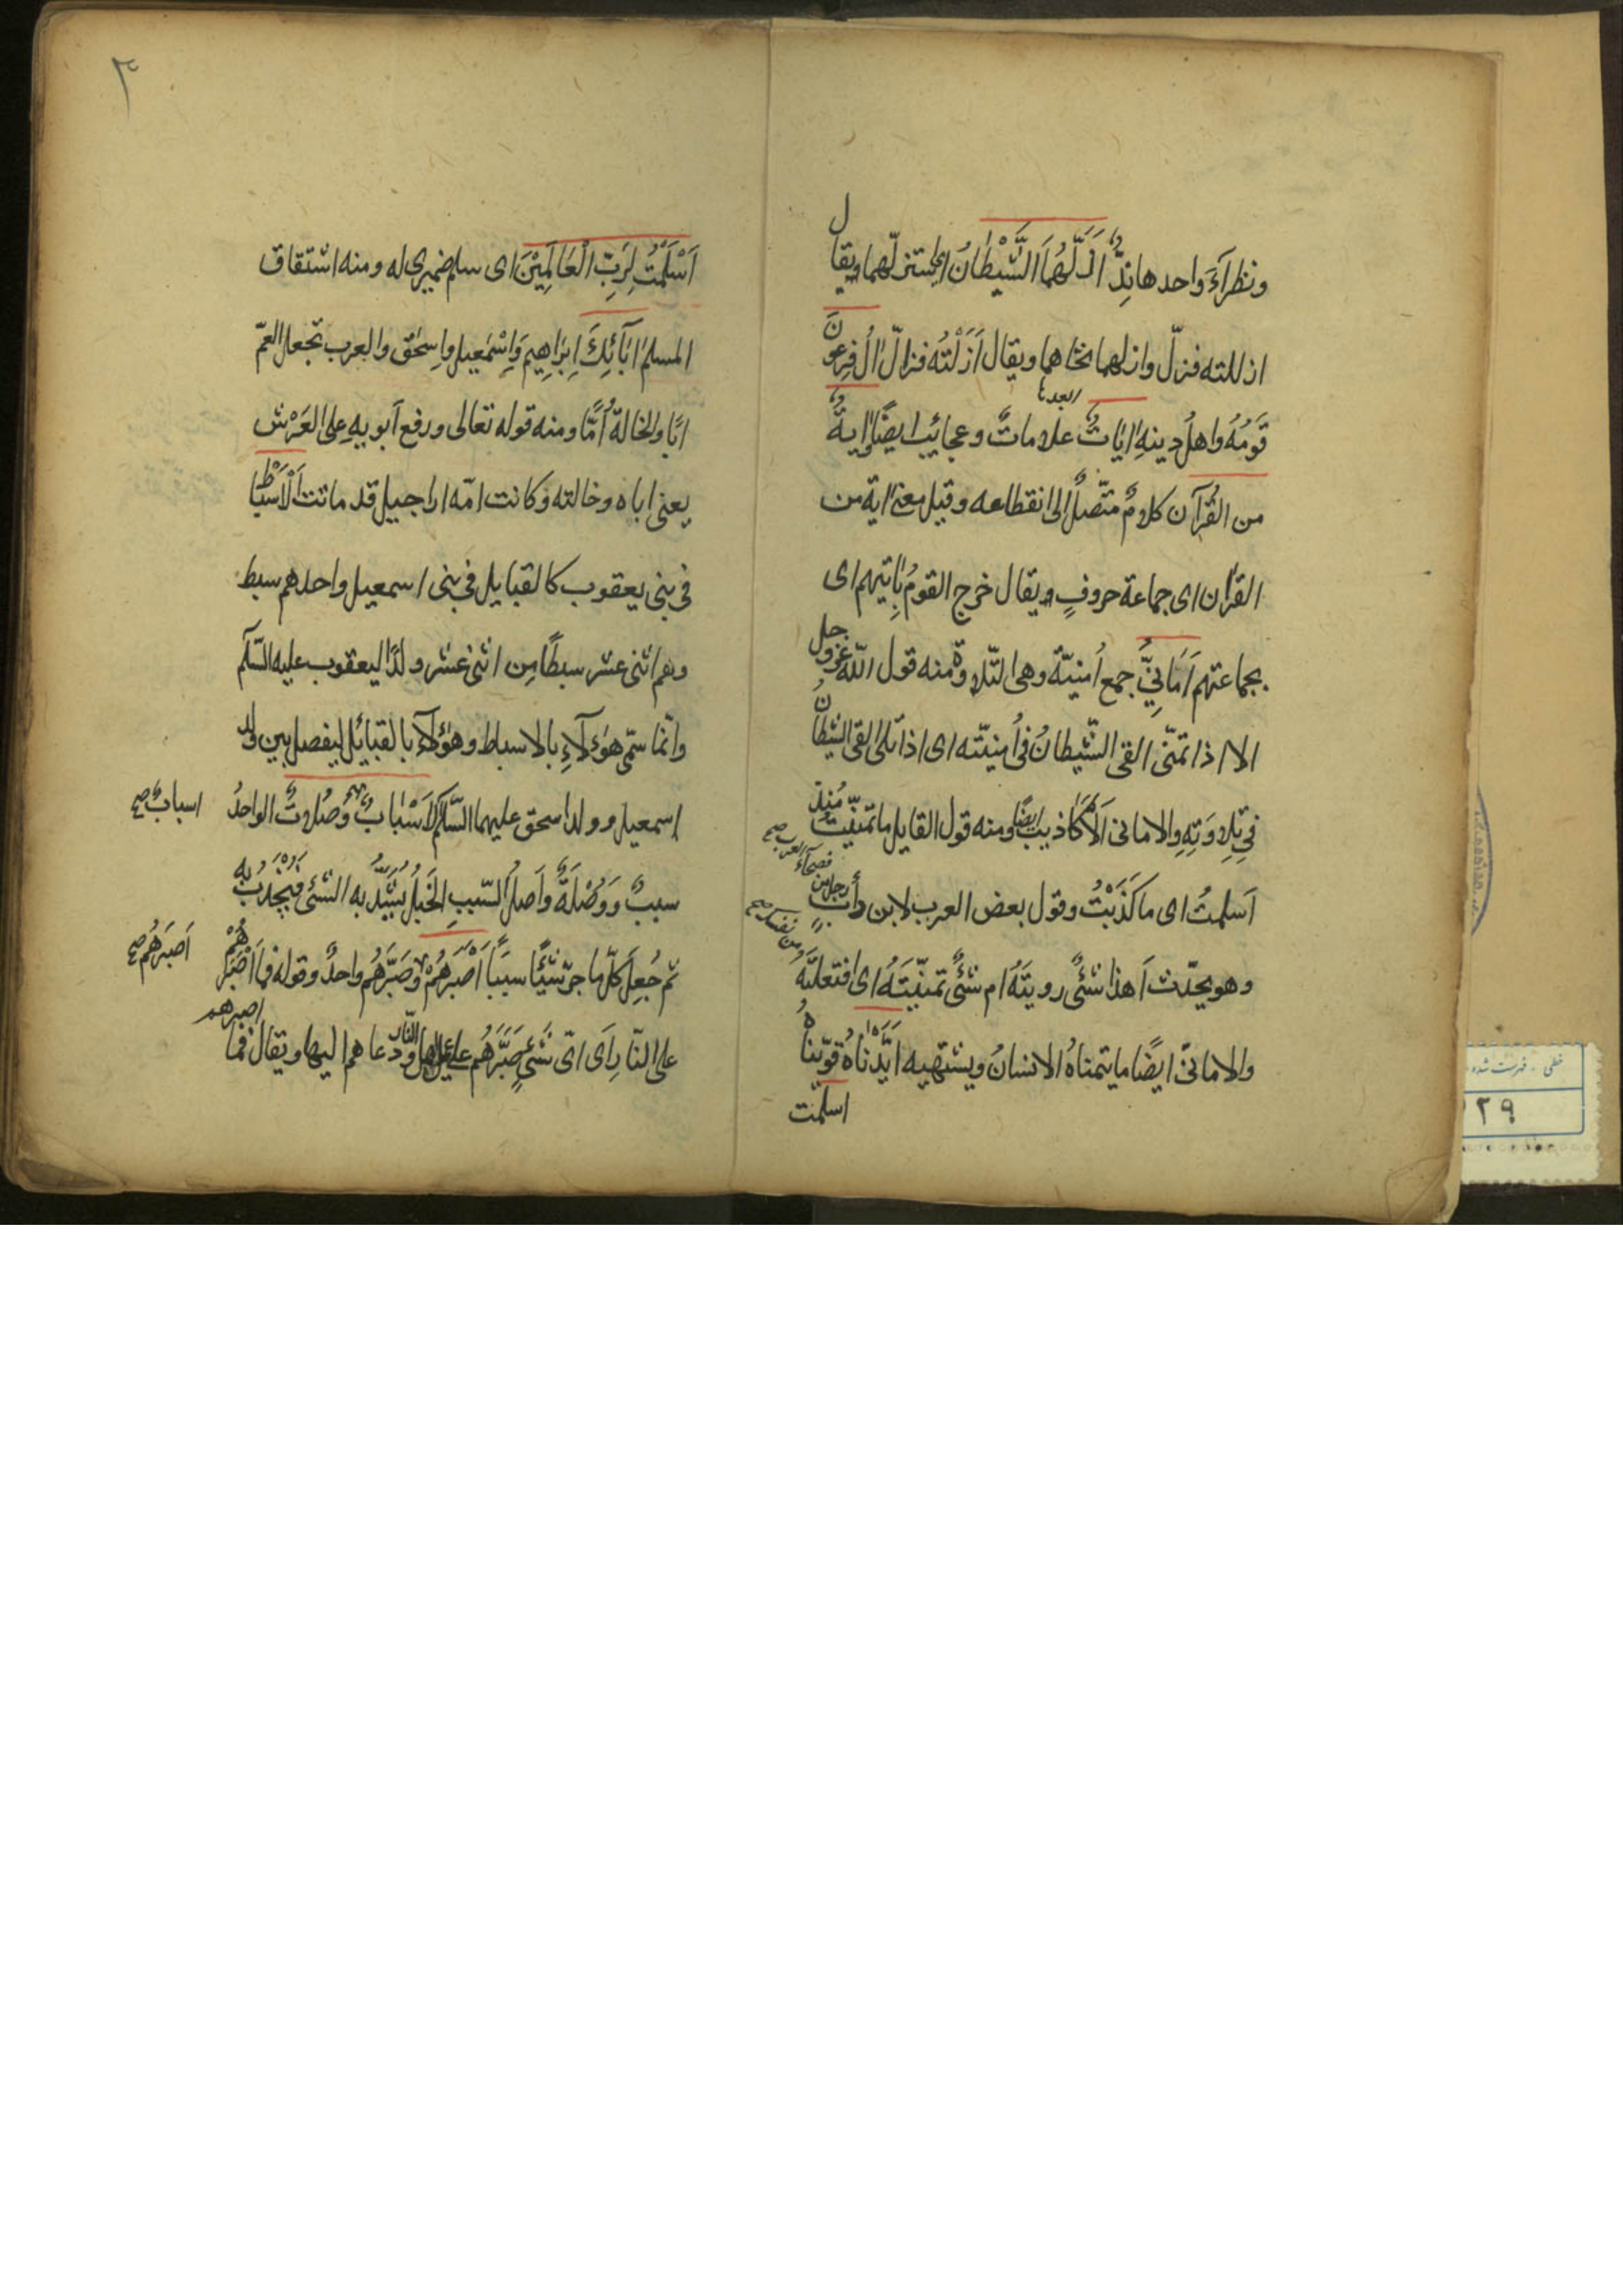 ونظرآءَ واحدها نِدٌّ اَزَلَّهُمَا الشَّيْطٰانُ اى استزلّهما ويقال
ازللته فزلّ وازلهما نحّاهما ويقال اَزَلْتُه فزال اٰلُ فِرعونَ
قَومُهُ واهلُ دينهِ اٰيٰاتٌ علاماتٌ وعجايبُ ايضًا واٰيةٌ
من القُرآن كلامٌ متّصلٌ الى انقطاعه وقيل معنى اية من
القرٰان اى جماعة حروفٍ ويقال خرج القومُ بِاٰيتهم اى
بجماعتهم اَمَانِيُّ جمع اُمنيّة وهى التّلاوة ومنه قول اللّه عزوجل
الا اذا تمنّى القى الشّيطانُ فى اُمنيّته اى اذا تلى القى الشيطانُ
فى تِلاوَتِهِ والامانى الَاكَاذيبُ ايضًا ومنه قول القايل ما تمنّيتُ مُنذُ
اَسلمتُ اى ما كَذَبْتُ وقول بعض العرب لابن دأب
رجل من فصحآء العرب صح
وهو يحدّث اَهذا شئٌ رويتَهُ ام شئٌ تمنّيتَهُ اى افتعلتَهُ
من نفسك صح
والامانىّ ايضًا ما يتمناهُ الانسانُ ويشتهيه اَيَّدْنٰاهُ قوّيناهُ
اسلمت
٣
اَسْلَمْتُ لِرَبِّ الْعَالَمِيْنَ اى سلم ضميرى له ومنه اشتقاق
المسلم اٰبَآئِكَ اِبرَاهِيمَ وَاِسْمٰعيل واِسحٰق والعرب تجعل العمّ
ابًا والخالة اُمًّا ومنه قوله تعالى ورفع اَبويهِ على العَرْش
يعنى اباه وخالته وكانت امّه راحيل قد ماتت اَلْاَسْبَاط
فى بنى يعقوب كالقبايل فى بنى اسمعيل واحدهم سبط
وهم اثنى عشر سبطًا مِن اثنى عشر ولدًا ليعقوب عليه السّلم
وانّما سمّى هؤلآءِ بالاسباط وهؤلآءِ بالقبائل ليفصل بين ولد
اسمعيل وولد اسحق عليهما السّلم اَسْبٰابٌ وُصُلاتٌ الواحدُ
اسبابٌ صح
سببٌ وَوُصْلَةٌ واَصلُ السّببِ الحَبْلُ يُشَدُّ به الشئ فيُجْذَبُ به
ثم جُعِلَ كلّ ما جرّ شيئًا سببًا اَصْبَرَهُمْ وصَبَّرَهُم واحدٌ وقوله فما اَصْبَرَهُمْ
اَصبَرَهُم صح
على النّارِ اَى اىّ شئٍ صَبَّرَهُم على النّار ودعاهم اليها ويقال فما
اصبرهم
خطى . فهرست شده
٢٩